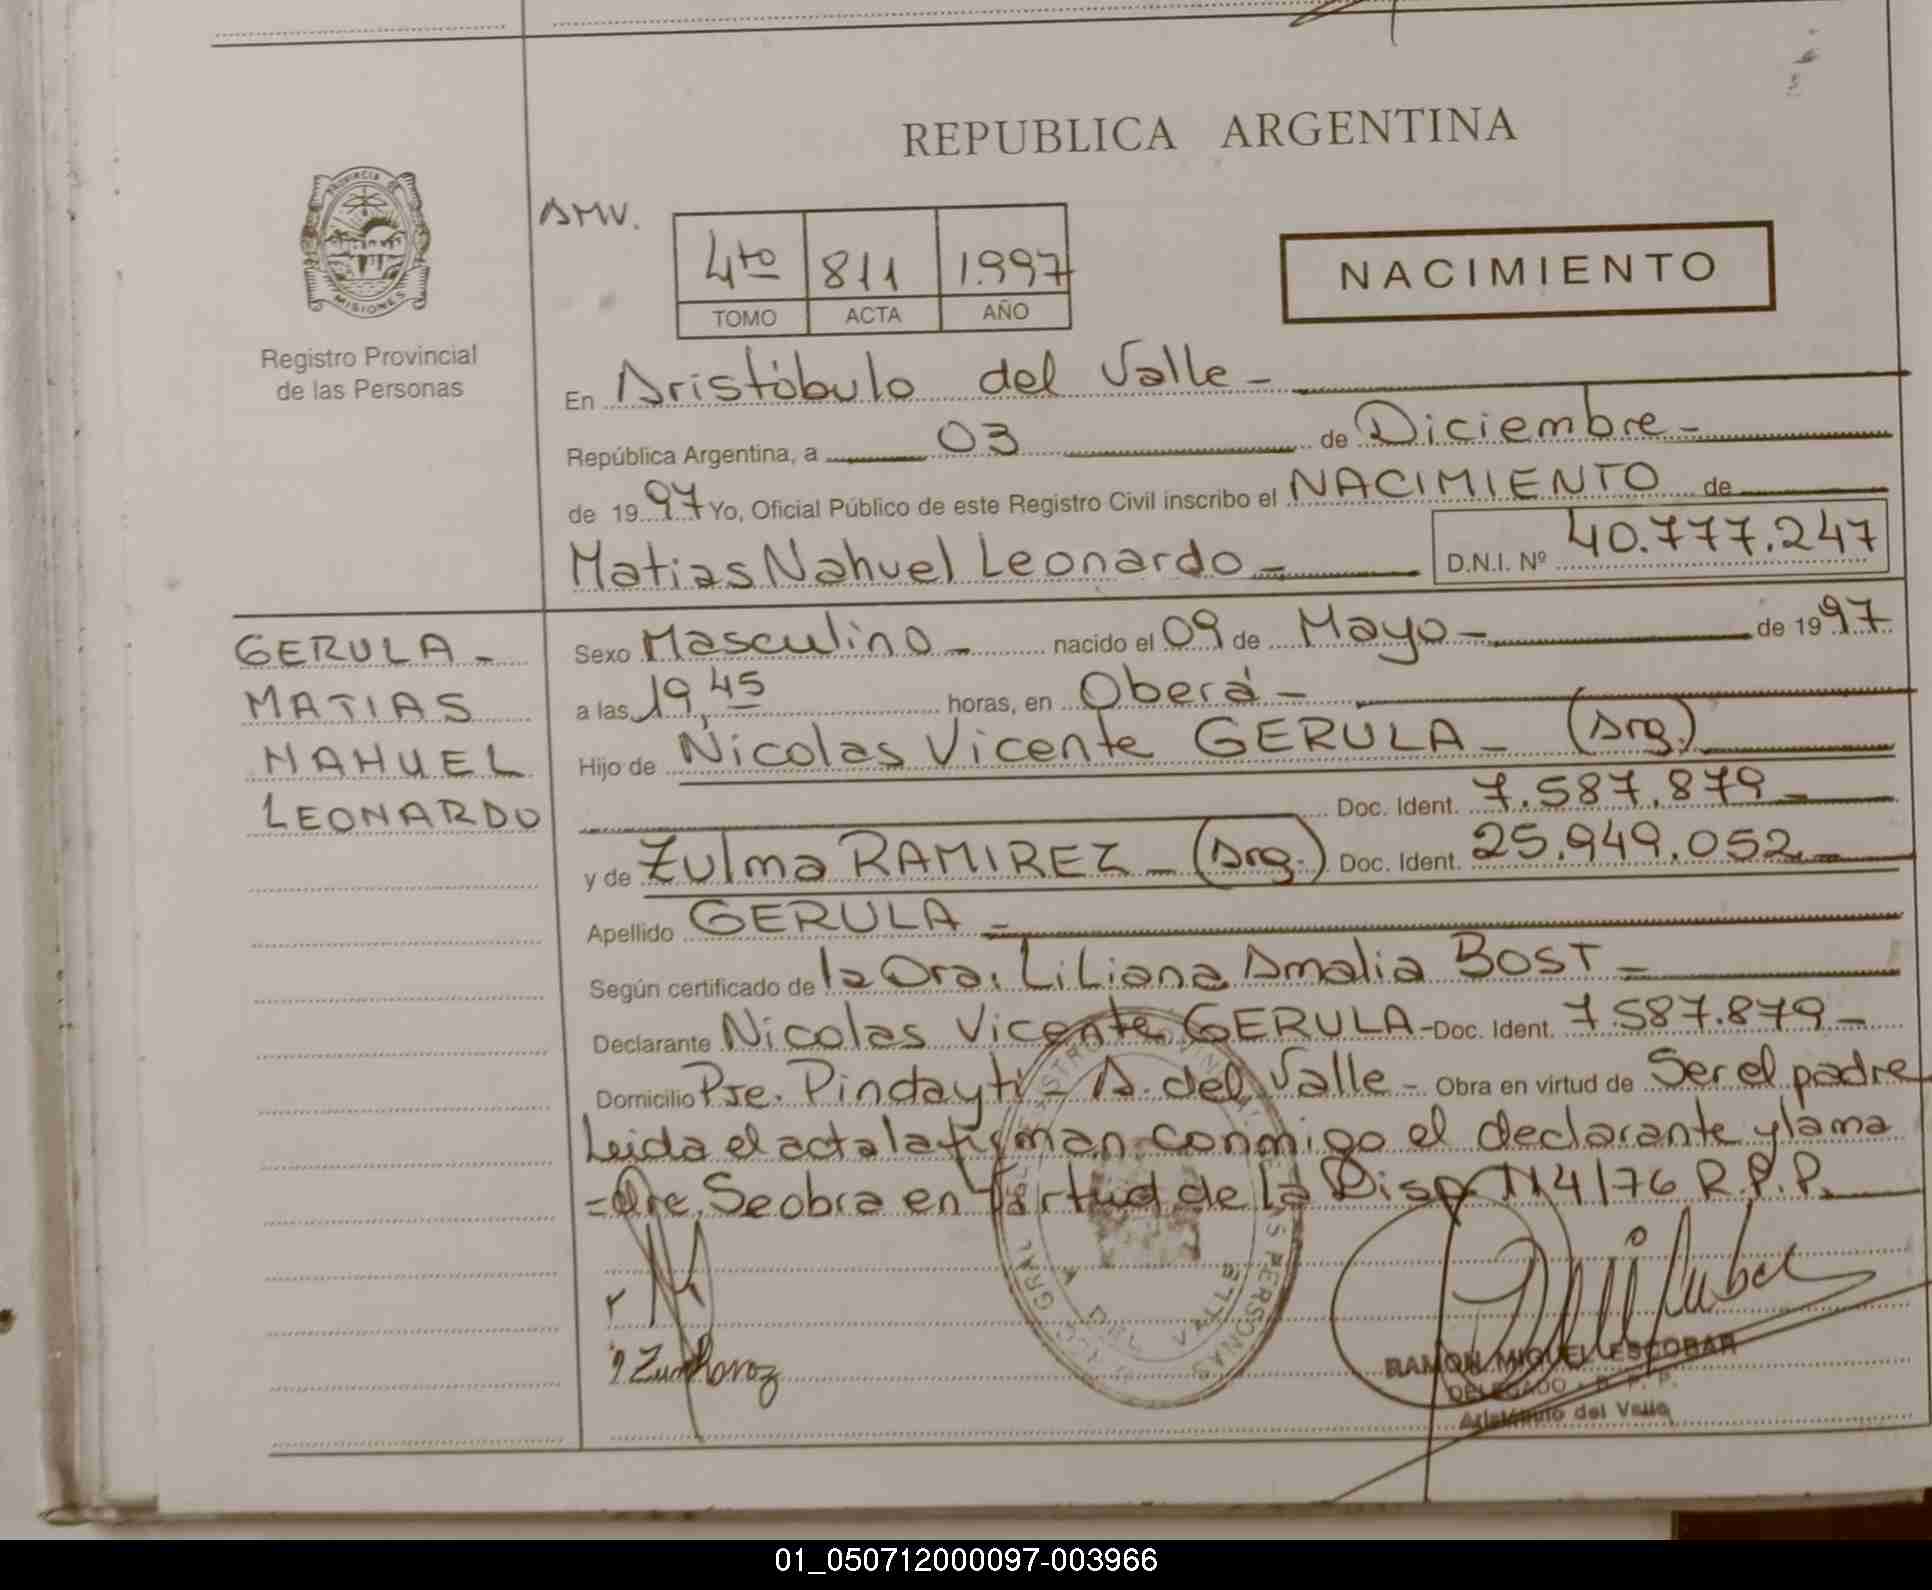 REPUBLICA ARGENTINA
PROVINCIA DE
MISIONES
Registro Provincial
de las Personas
AMV.
4to 811 1.997
TOMO ACTA AÑO
NACIMIENTO
En Aristóbulo del Valle-
República Argentina, a 03 de Diciembre-
de 1997 Yo, Oficial Público de este Registro Civil inscribo el NACIMIENTO de
Matias Nahuel Leonardo- D.N.I. Nº 40.777.247
GERULA-
MATIAS
NAHUEL
LEONARDO
Sexo Masculino- nacido el 09 de Mayo- de 1997
a las 19,45 horas, en Oberá-
Hijo de Nicolas Vicente GERULA- (Arg.)
Doc. Ident. 7.587.879-
y de Zulma RAMIREZ- (Arg.) Doc. Ident. 25.949.052.-
Apellido GERULA-
Según certificado de la Dra. Liliana Amalia BOST-
Declarante Nicolas Vicente GERULA- Doc. Ident. 7.587.879-
Domicilio Pje. Pindayti- A. del Valle- Obra en virtud de Ser el padre
Leida el acta la firman conmigo el declarante y la ma
=dre. Se obra en virtud de la Disp. 114/76 R.P.P.
A. DEL VALLE
PERSONAS
RAMON MIGUEL ESCOBAR
DELEGADO - R. P. P.
Aristóbulo del Valle
01_050712000097-003966